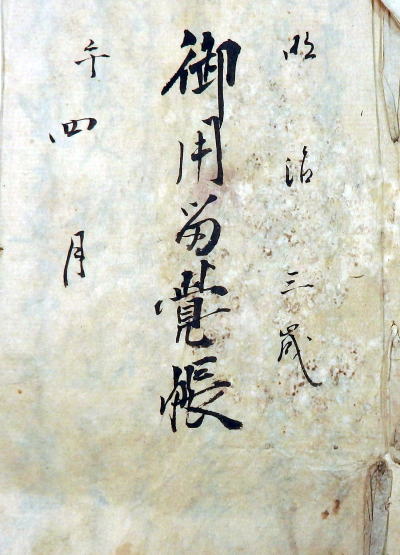 明治三歳
御用留覚帳
午四月